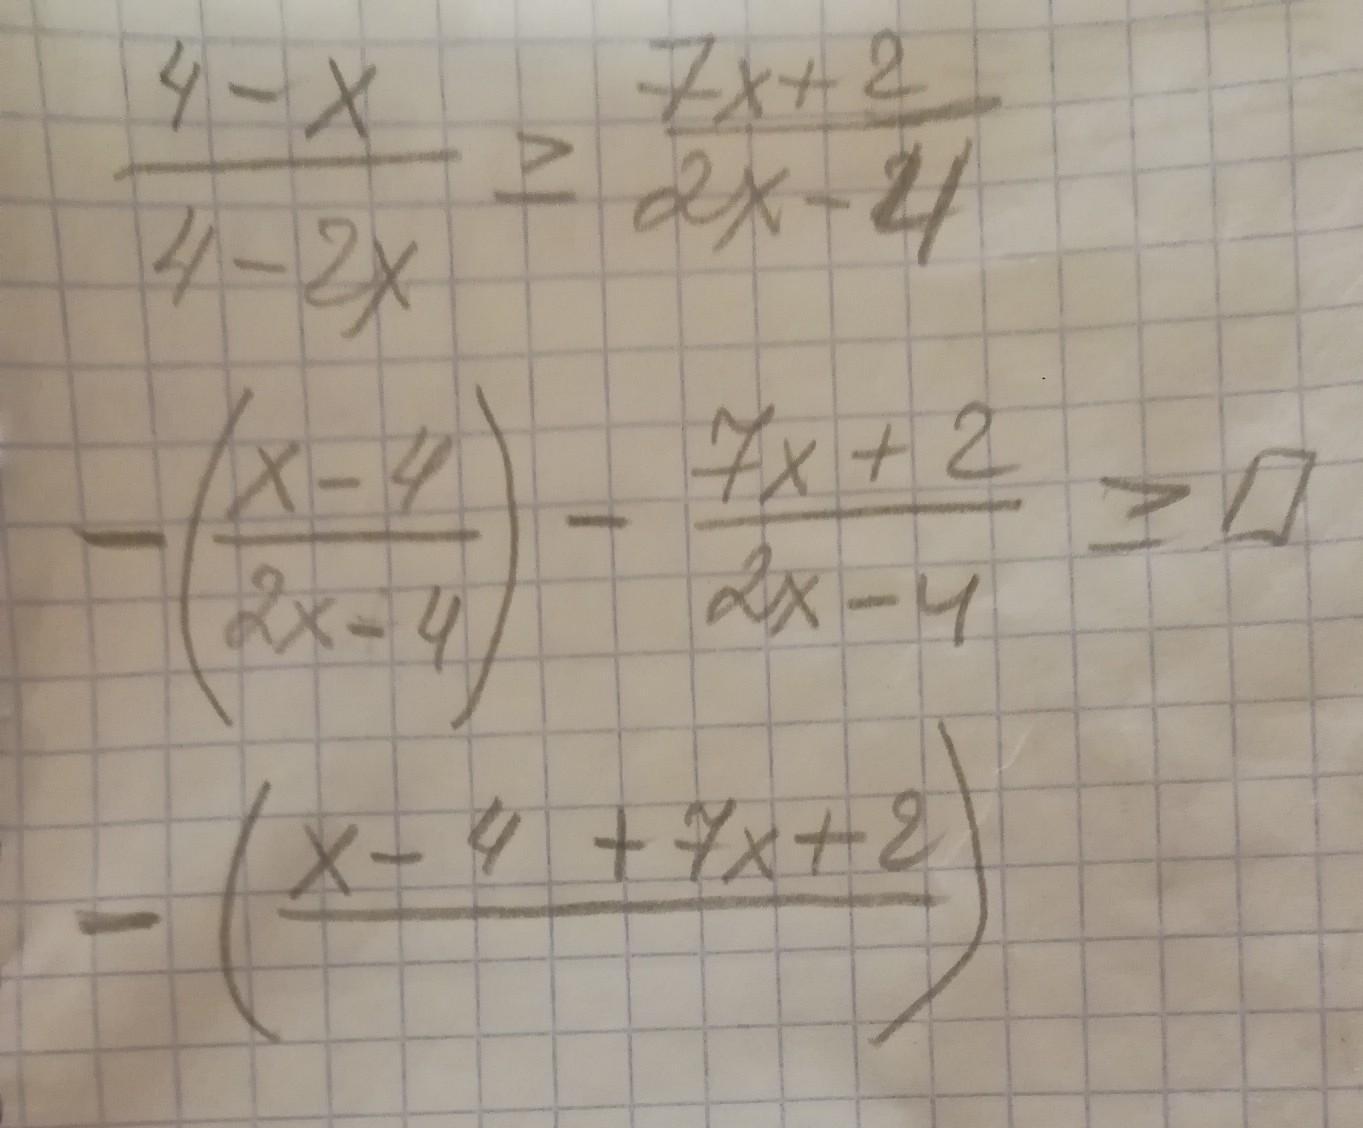 (4-x)/(4-2x) ≥ (7x+2)/(2x-4)
-((x-4)/(2x-4)) - (7x+2)/(2x-4) ≥ 0
-(x-4 +7x+2)